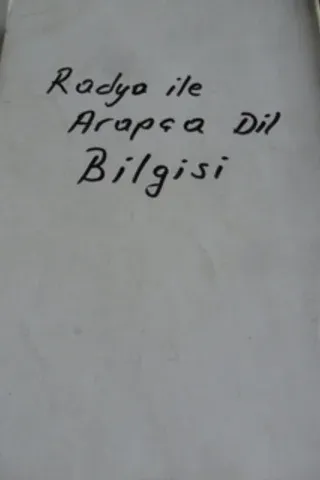 Radyo ile
Arapça Dil
Bilgisi